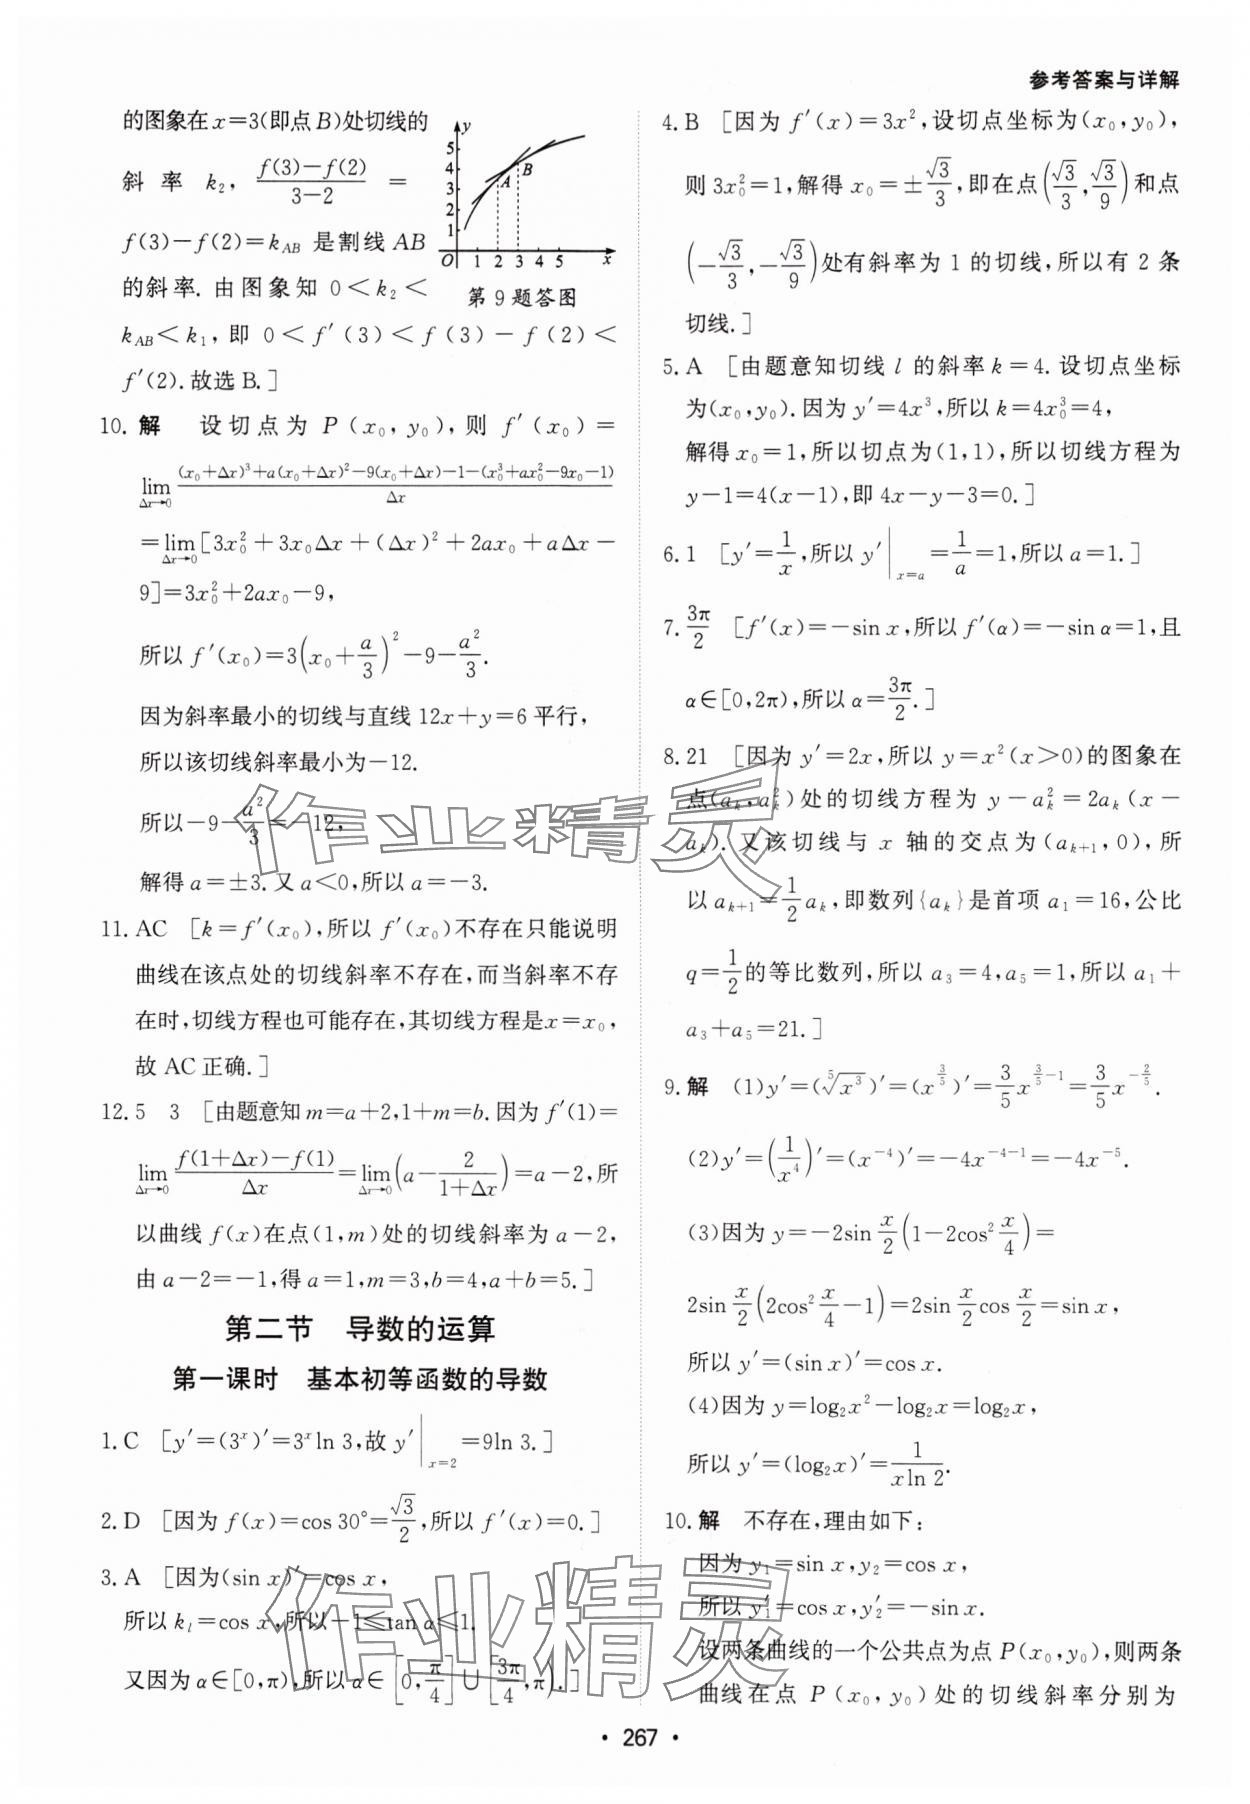 参考答案与详解
的图象在x=3(即点B)处切线的
斜率 k₂, (f(3)-f(2))/(3-2) =
f(3)-f(2)=k_{AB} 是割线AB
的斜率. 由图象知 0<k₂<
y
5
4
3
2
1
A
B
O 1 2 3 4 5 x
第9题答图
k_{AB}<k₁, 即 0<f′(3)<f(3)-f(2)<
f′(2). 故选B.]
10. 解 设切点为 P(x₀, y₀), 则 f′(x₀)=
lim_{Δx→0} ((x₀+Δx)³+a(x₀+Δx)²-9(x₀+Δx)-1-(x₀³+ax₀²-9x₀-1))/Δx
=lim_{Δx→0}[3x₀²+3x₀Δx+(Δx)²+2ax₀+aΔx-
9]=3x₀²+2ax₀-9,
所以 f′(x₀)=3(x₀+a/3)²-9-a²/3.
因为斜率最小的切线与直线12x+y=6平行,
所以该切线斜率最小为-12.
所以-9-a²/3=-12,
解得a=±3. 又a<0,所以a=-3.
11. AC [k=f′(x₀),所以 f′(x₀)不存在只能说明
曲线在该点处的切线斜率不存在,而当斜率不存
在时,切线方程也可能存在,其切线方程是x=x₀,
故AC正确.]
12. 5 3 [由题意知m=a+2,1+m=b. 因为 f′(1)=
lim_{Δx→0} (f(1+Δx)-f(1))/Δx=lim_{Δx→0}(a-2/(1+Δx))=a-2,所
以曲线 f(x)在点(1,m)处的切线斜率为a-2,
由a-2=-1,得a=1,m=3,b=4,a+b=5.]
第二节 导数的运算
第一课时 基本初等函数的导数
1. C [y′=(3ˣ)′=3ˣln 3,故 y′|_{x=2}=9ln 3.]
2. D [因为 f(x)=cos 30°=√3/2,所以 f′(x)=0.]
3. A [因为(sin x)′=cos x,
所以 k_l=cos x,所以-1≤tan α≤1.
又因为α∈[0,π),所以α∈[0,π/4]∪[3π/4,π).]
4. B [因为 f′(x)=3x²,设切点坐标为(x₀,y₀),
则 3x₀²=1,解得 x₀=±√3/3,即在点(√3/3,√3/9)和点
(-√3/3,-√3/9)处有斜率为1的切线,所以有2条
切线.]
5. A [由题意知切线 l 的斜率k=4. 设切点坐标
为(x₀,y₀). 因为 y′=4x³,所以k=4x₀³=4,
解得x₀=1,所以切点为(1,1),所以切线方程为
y-1=4(x-1),即4x-y-3=0.]
6. 1 [y′=1/x,所以 y′|_{x=a}=1/a=1,所以a=1.]
7. 3π/2 [f′(x)=-sin x,所以 f′(α)=-sin α=1,且
α∈[0,2π),所以α=3π/2.]
8. 21 [因为 y′=2x,所以 y=x²(x>0)的图象在
点(a_k,a_k²)处的切线方程为 y-a_k²=2a_k(x-
a_k). 又该切线与 x 轴的交点为(a_{k+1},0),所
以a_{k+1}=1/2 a_k,即数列{a_k}是首项a₁=16,公比
q=1/2的等比数列,所以a₃=4,a₅=1,所以a₁+
a₃+a₅=21.]
9. 解 (1)y′=(⁵√x³)′=(x^{3/5})′=3/5 x^{3/5-1}=3/5 x^{-2/5}.
(2)y′=(1/x⁴)′=(x⁻⁴)′=-4x⁻⁴⁻¹=-4x⁻⁵.
(3)因为 y=-2sin x/2(1-2cos² x/4)=
2sin x/2(2cos² x/4-1)=2sin x/2 cos x/2=sin x,
所以 y′=(sin x)′=cos x.
(4)因为 y=log₂x²-log₂x=log₂x,
所以 y′=(log₂x)′=1/(xln 2).
10. 解 不存在,理由如下:
因为y₁=sin x,y₂=cos x,
所以y₁′=cos x,y₂′=-sin x.
设两条曲线的一个公共点为点 P(x₀,y₀),则两条
曲线在点 P(x₀,y₀)处的切线斜率分别为
作业精灵
作业精灵
· 267 ·